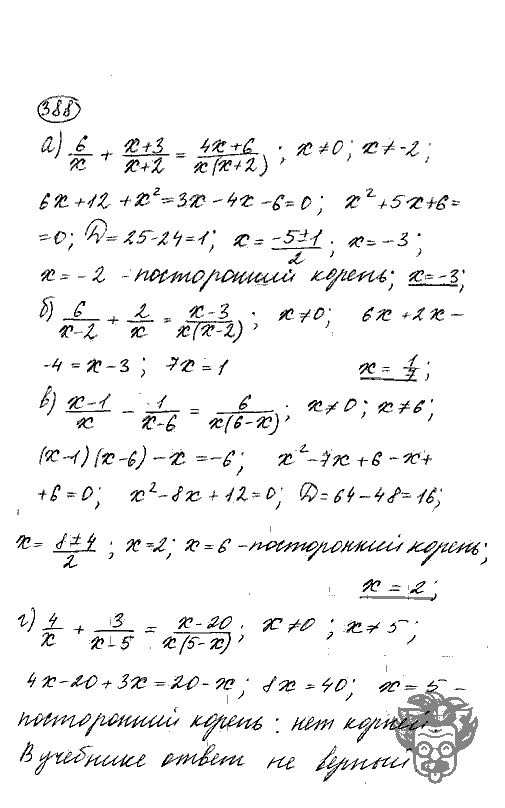 388
а) 6/x + (x+3)/(x+2) = (4x+6)/(x(x+2)) ; x≠0; x≠-2;
6x+12+x²=3x-4x-6=0; x²+5x+6=
=0; D=25-24=1; x=(-5±1)/2; x=-3;
x=-2 - посторонний корень; x=-3;
б) 6/(x-2) + 2/x = (x-3)/(x(x-2)) ; x≠0; 6x+2x-
-4=x-3; 7x=1 x=1/7;
в) (x-1)/x - 1/(x-6) = 6/(x(6-x)); x≠0; x≠6;
(x-1)(x-6)-x=-6; x²-7x+6-x+
+6=0; x²-8x+12=0; D=64-48=16;
x=(8±4)/2; x=2; x=6-посторонний корень;
x=2;
г) 4/x + 3/(x-5) = (x-20)/(x(5-x)); x≠0; x≠5;
4x-20+3x=20-x; 8x=40; x=5-
посторонний корень: нет корней.
В учебнике ответ не верный